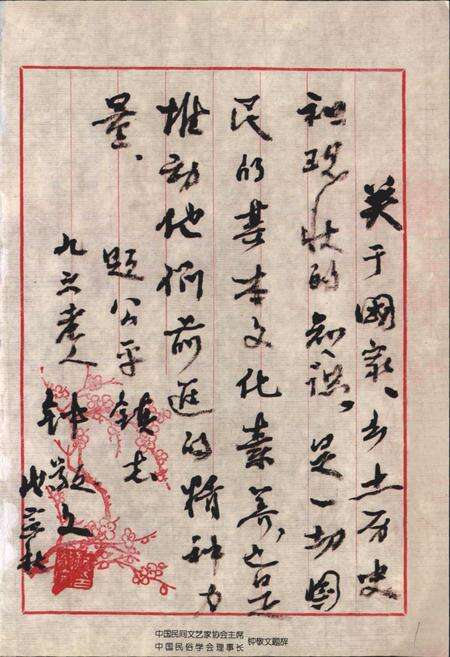 关于国家、乡土历史
和现状的知识，是一切国
民的基本文化素养，也是
推动他们前进的精神力
量。
题公平镇志
九六老人 钟敬文
中国民间文艺家协会主席
中国民俗学会理事长 钟敬文题辞